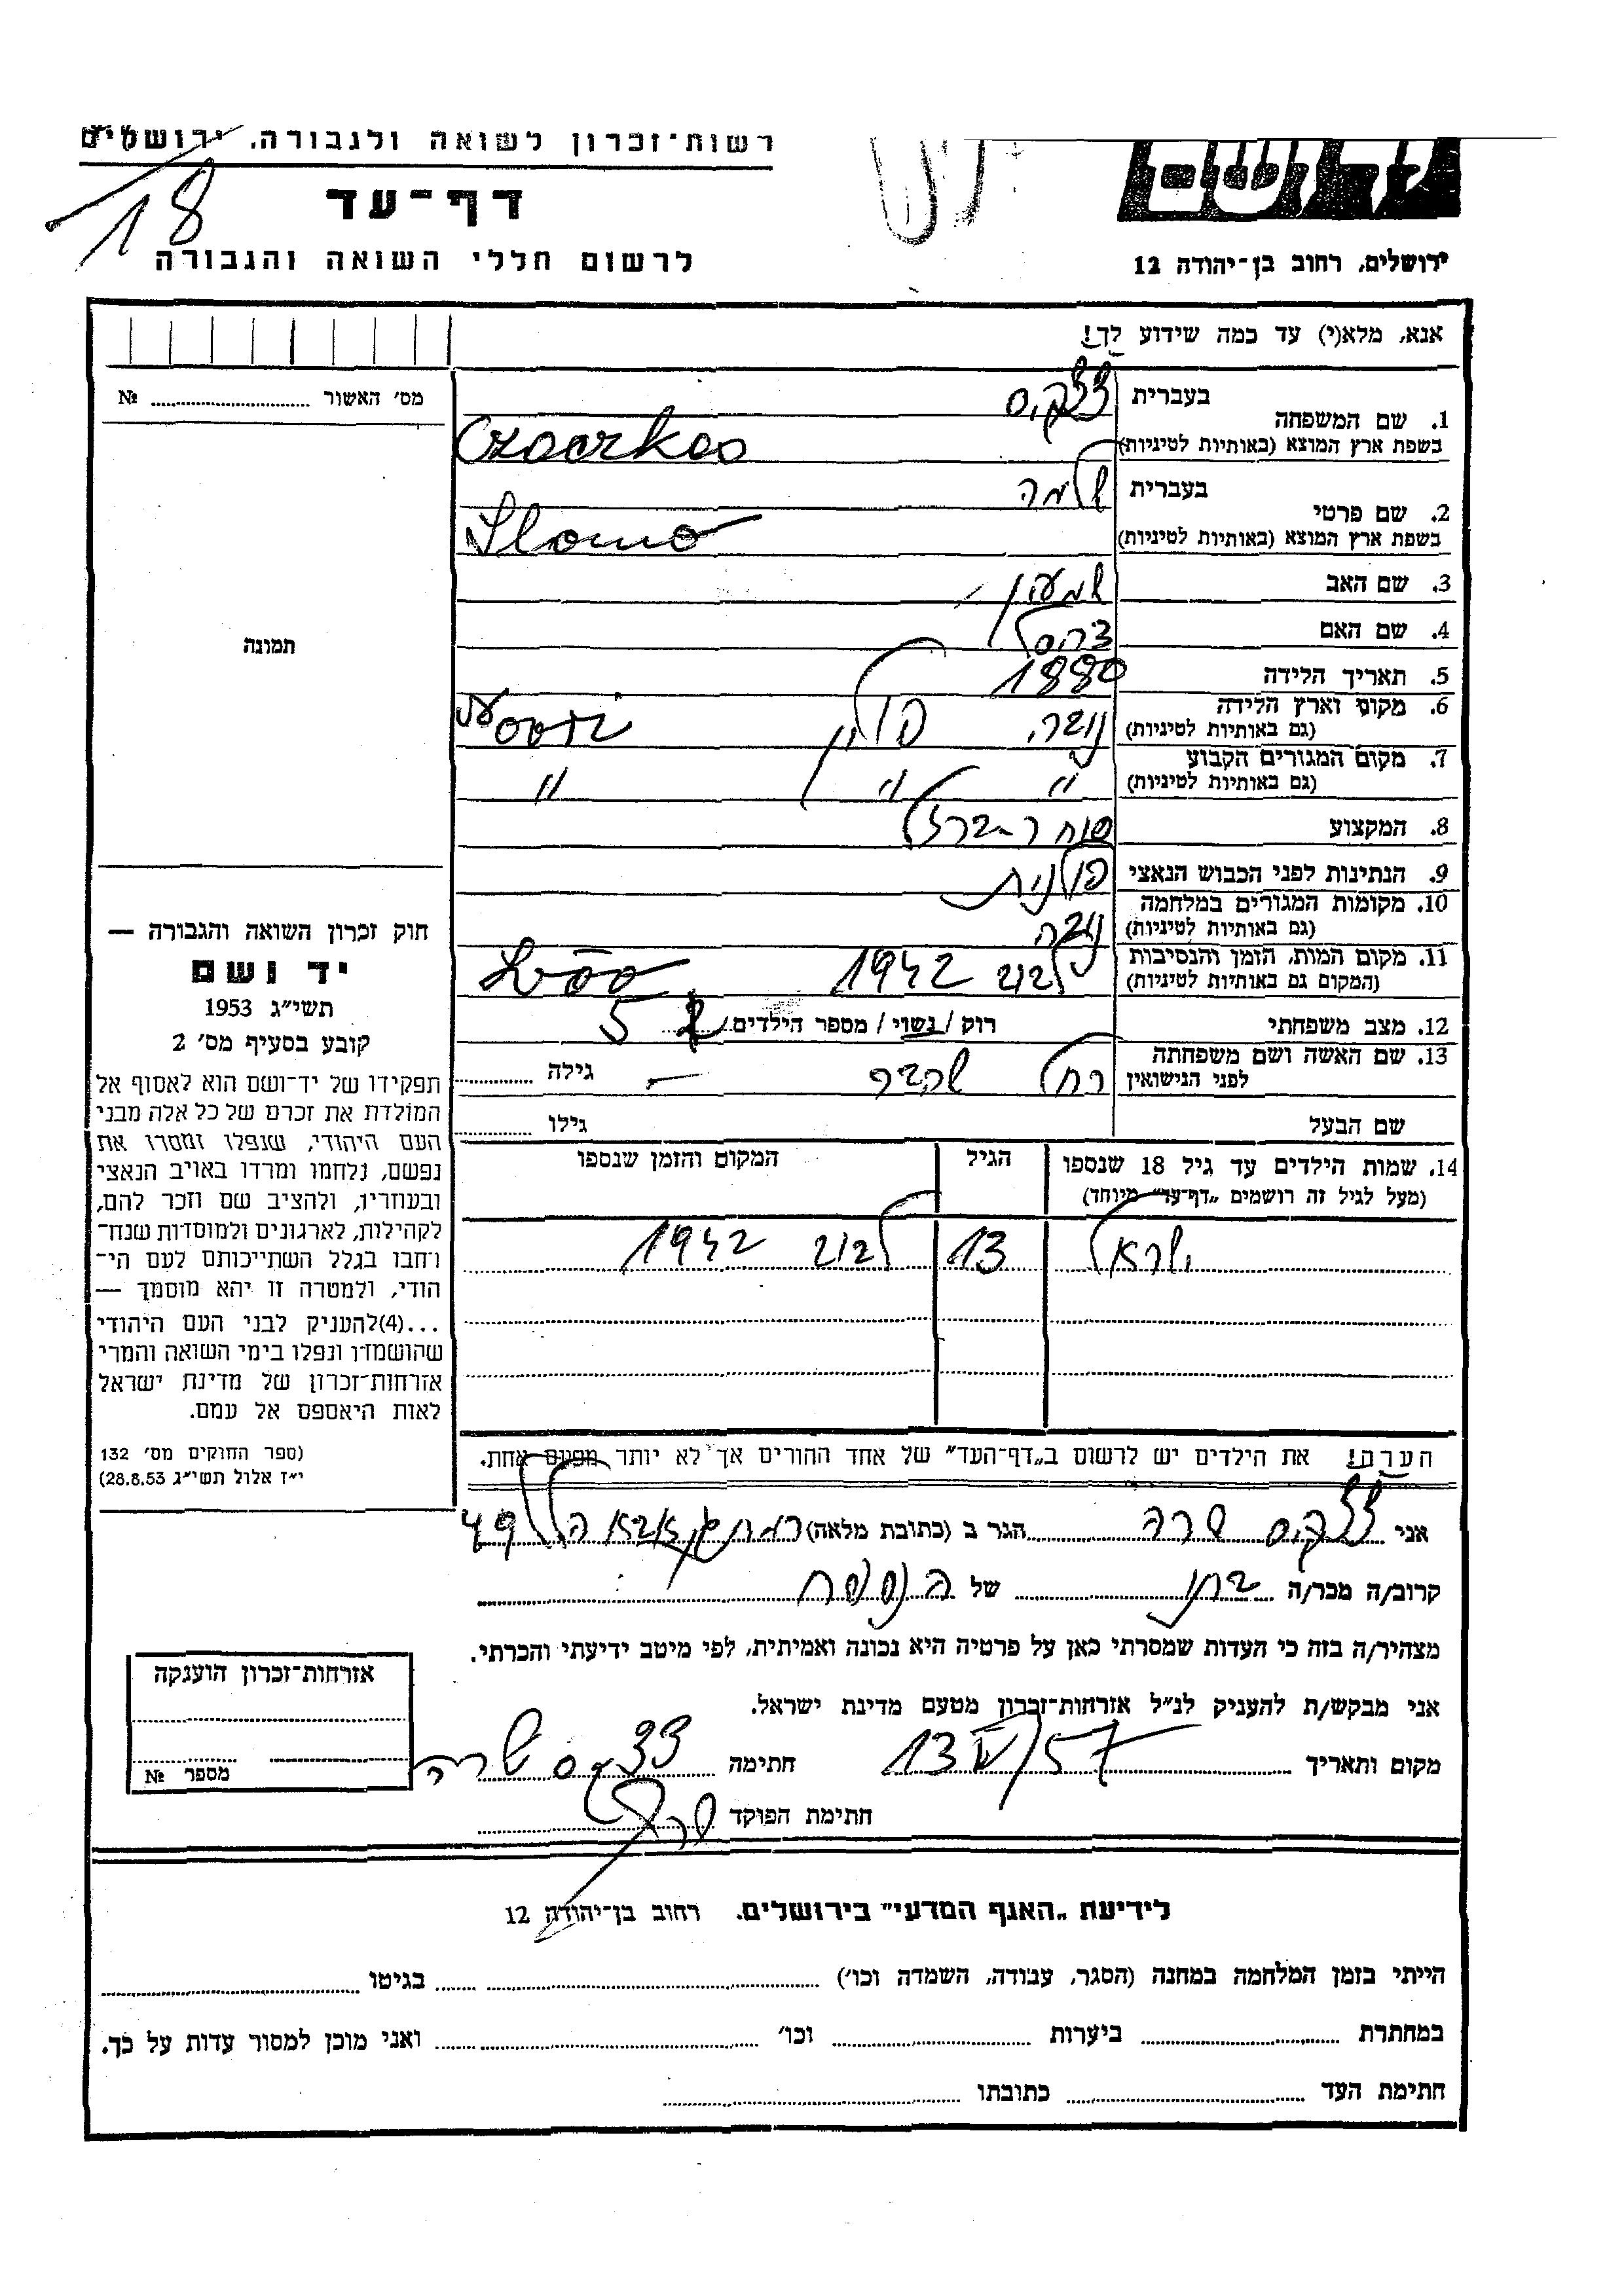 רשות־זכרון לשואה ולגבורה, ירושלים
18
דף־עד
לרשום חללי השואה והגבורה
ושם
ירושלים, רחוב בן־יהודה 12
אנא, מלא(י) עד כמה שידוע לך!
מס׳ האשור № 
1. שם המשפחה
בעברית
בשפת ארץ המוצא (באותיות לטיניות)
2. שם פרטי
בעברית שלמה
בשפת ארץ המוצא (באותיות לטיניות) Slomo
3. שם האב שמעון
4. שם האם
5. תאריך הלידה 1880
6. מקום וארץ הלידה
(גם באותיות לטיניות) פולין
7. מקום המגורים הקבוע
(גם באותיות לטיניות) " " "
8. המקצוע סוחר ברזל
9. הנתינות לפני הכבוש הנאצי פולנית
10. מקומות המגורים במלחמה
(גם באותיות לטיניות)
11. מקום המות, הזמן והנסיבות
(המקום גם באותיות לטיניות) 1942
12. מצב משפחתי רוק / נשוי / מספר הילדים 5
13. שם האשה ושם משפחתה
לפני הנישואין רחל גילה —
שם הבעל גילו
14. שמות הילדים עד גיל 18 שנספו
(מעל לגיל זה רושמים „דף־עד" מיוחד)
הגיל
המקום והזמן שנספו
ישראל 13 1942
הערה! את הילדים יש לרשום ב„דף־העד" של אחד ההורים אך לא יותר מפעם אחת.
תמונה
חוק זכרון השואה והגבורה —
יד ושם
תשי״ג 1953
קובע בסעיף מס׳ 2
תפקידו של יד־ושם הוא לאסוף אל
המולדת את זכרם של כל אלה מבני
העם היהודי, שנפלו ומסרו את
נפשם, נלחמו ומרדו באויב הנאצי
ובעוזריו, ולהציב שם וזכר להם,
לקהילות, לארגונים ולמוסדות שנח־
רחבו בגלל השתייכותם לעם הי־
הודי, ולמטרה זו יהא מוסמך —
...(4)להעניק לבני העם היהודי
שהושמדו ונפלו בימי השואה והמרי
אזרחות־זכרון של מדינת ישראל
לאות היאספם אל עמם.
(ספר החוקים מס׳ 132
י״ז אלול תשי״ג 28.8.53)
אני שרה הגר ב (כתובת מלאה)
קרוב/ה מכר/ה בתו של הנספה
מצהיר/ה בזה כי העדות שמסרתי כאן על פרטיה היא נכונה ואמיתית, לפי מיטב ידיעתי והכרתי.
אני מבקש/ת להעניק לנ״ל אזרחות־זכרון מטעם מדינת ישראל.
מקום ותאריך חתימה שרה
חתימת הפוקד
אזרחות־זכרון הוענקה
מספר №
לידיעת „האגף המדעי" בירושלים. רחוב בן־יהודה 12
הייתי בזמן המלחמה במחנה (הסגר, עבודה, השמדה וכו׳) בגיטו
במחתרת ביערות וכו׳ ואני מוכן למסור עדות על כך.
חתימת העד כתובתו